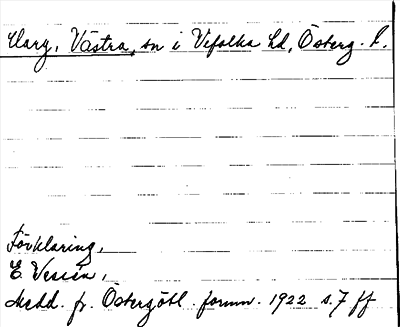 Harg, Västra, sn i Vifolka hd, Österg. l.
Förklaring,
E Wessén,
Medd. fr. Östergötl. fornm. 1922 s. 7 ff